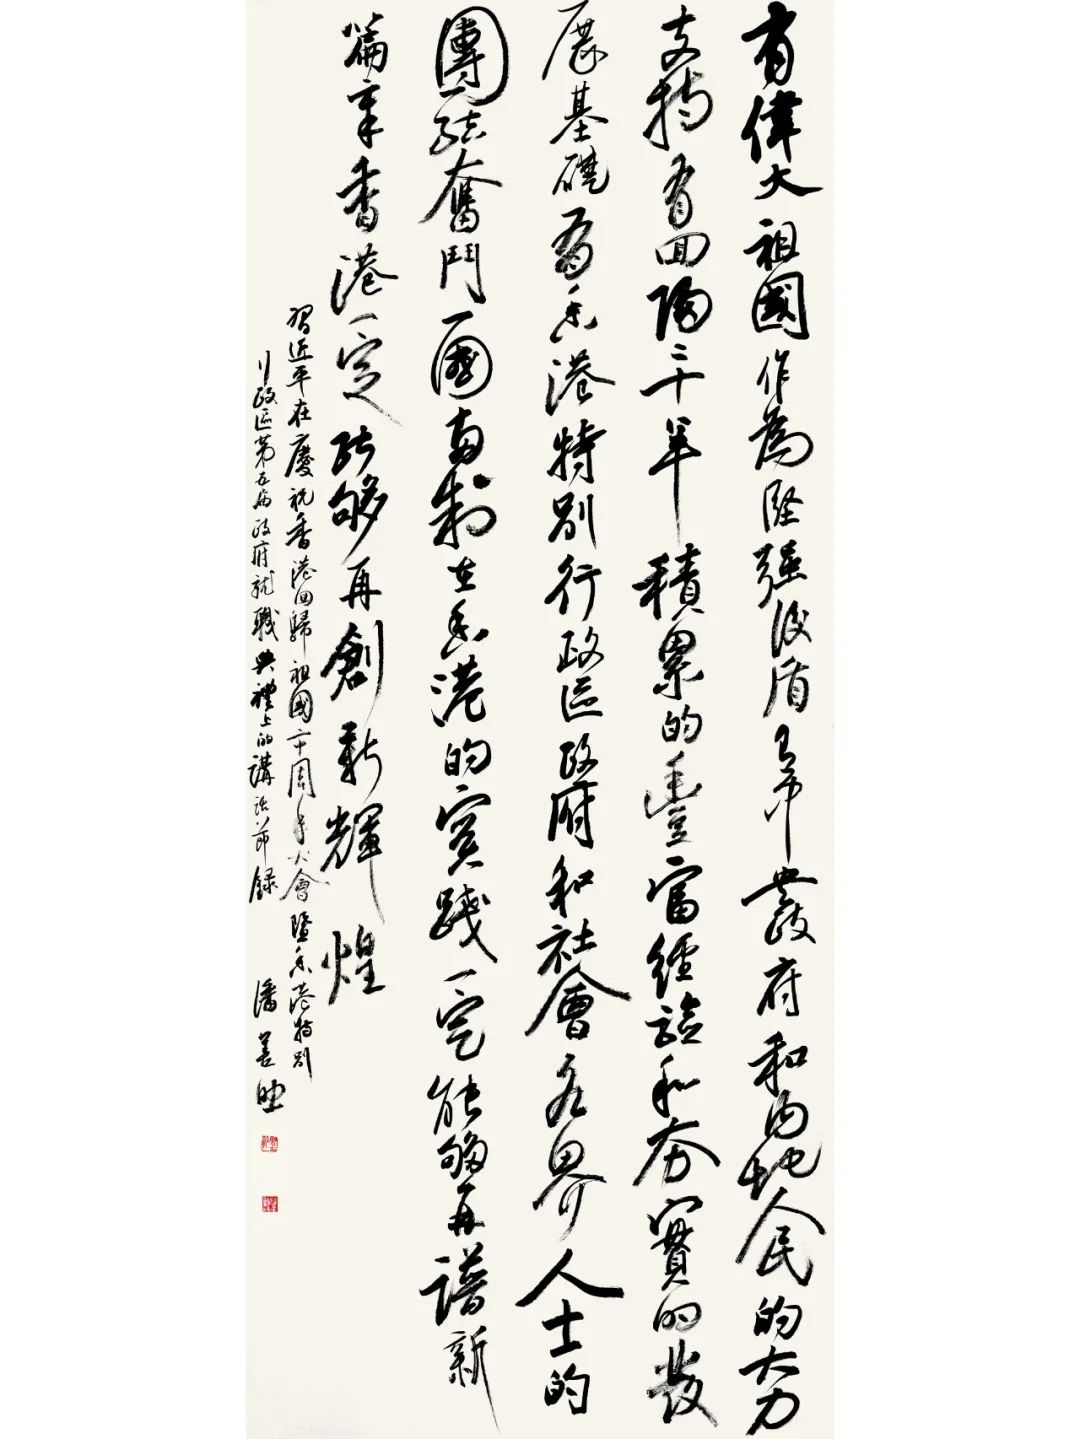 有偉大祖國作為堅强後盾有中央政府和内地人民的大力
支持有回歸二十年積累的豐富經驗和夯實的發
展基礎有香港特别行政區政府和社會各界人士的
團結奮鬥一國兩制在香港的實踐一定能够再譜新
篇章香港一定能够再創新輝煌
習近平在慶祝香港回歸祖國二十周年大會暨香港特别
行政區第五屆政府就職典禮上的講話節録
潘善助